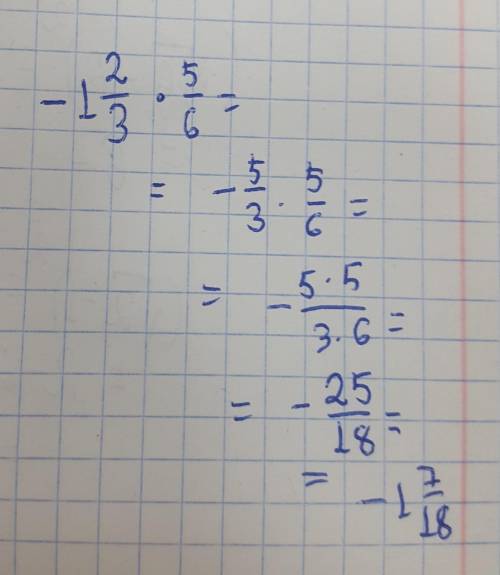 -1 2/3 · 5/6 =
= -5/3 · 5/6 =
= -(5·5)/(3·6) =
= -25/18 =
= -1 7/18